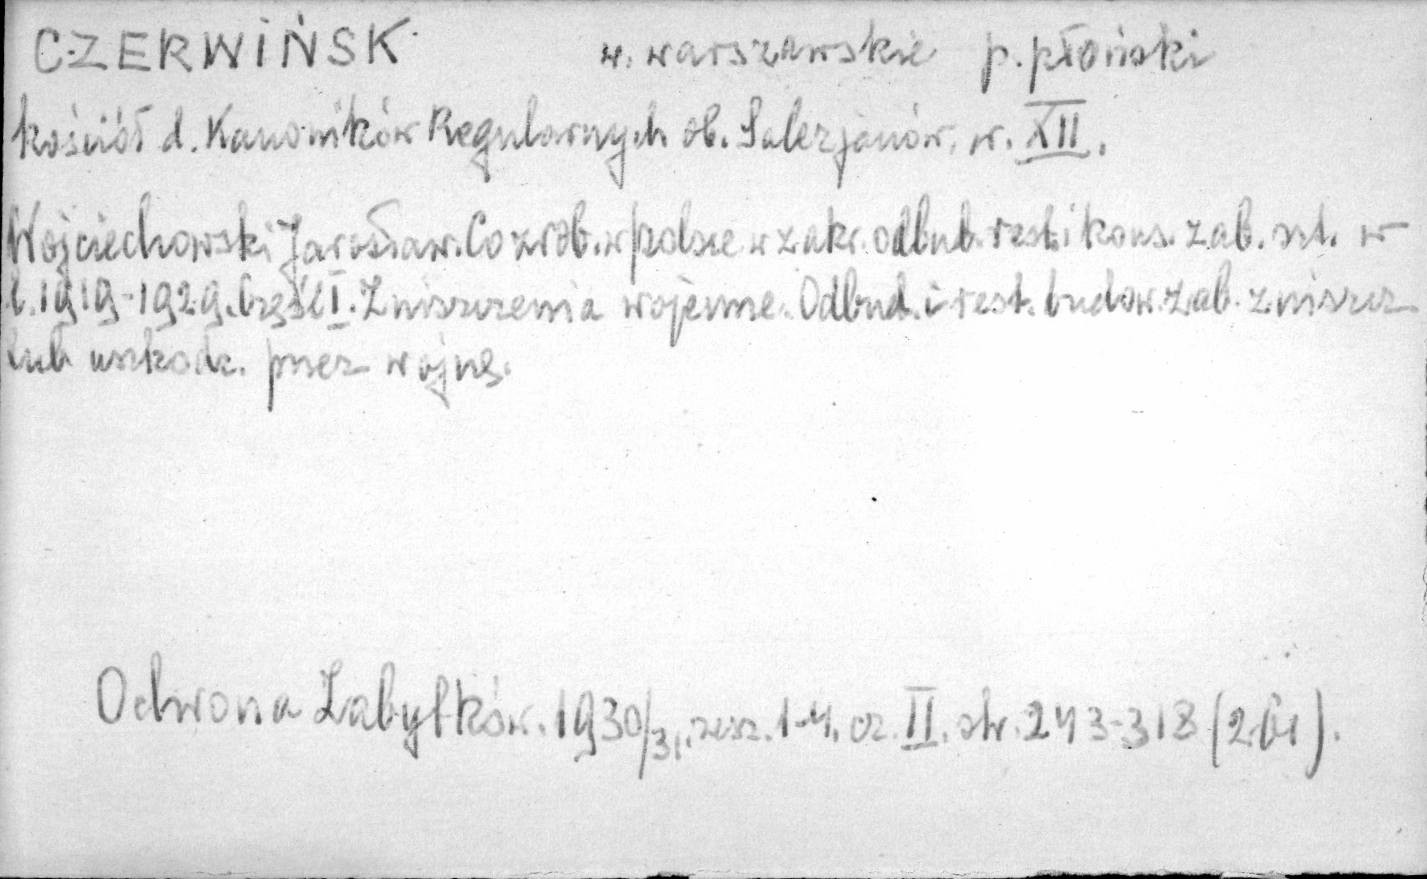 CZERWIŃSK w. warszawskie p. płoński
kościół d. Kanoników Regularnych ob. Salezjanów, w. XII.
Wojciechowski Jarosław. Co zrob. w Polsce w zakr. odbud. rest. i kons. zab. szt. w
l. 1919-1929. Część I. Zniszczenia wojenne. Odbud. i rest. budow. zab. zniszcz.
lub uszkodz. przez wojnę.
Ochrona Zabytków. 1930/31, zesz. 1-4, cz. II. str. 243-318 (261).